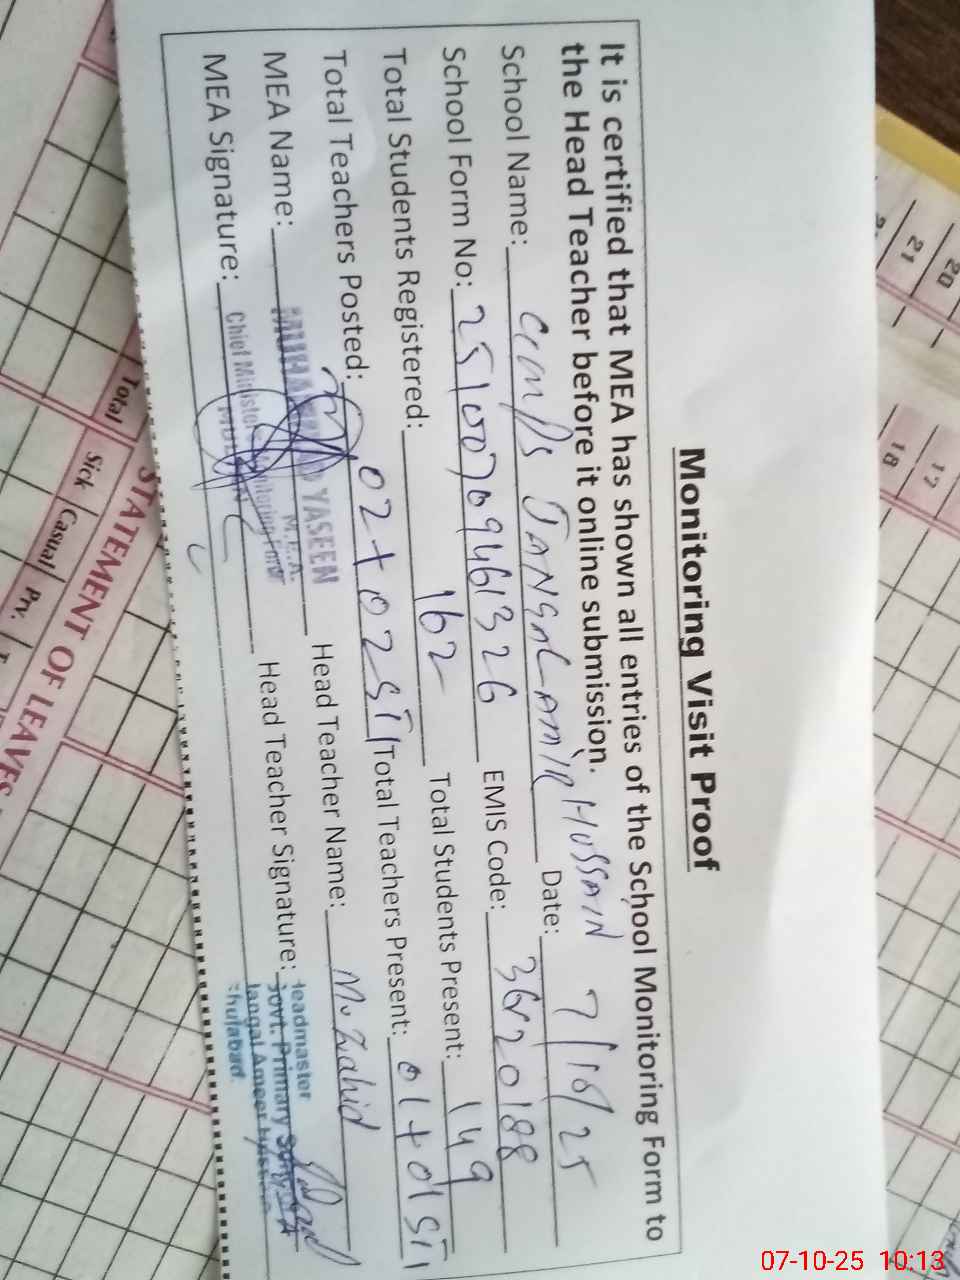 Monitoring Visit Proof
It is certified that MEA has shown all entries of the School Monitoring Form to
the Head Teacher before it online submission.
School Name: GMPS JANGAL AMIR HUSSAIN Date: 7/10/25
School Form No: 25100709461326 EMIS Code: 36420188
Total Students Registered: 162 Total Students Present: 149
Total Teachers Posted: 02+02 STI Total Teachers Present: 01+01 STI
MEA Name: MUHAMMAD YASEEN Head Teacher Name: M. Zahid
M.E.A.
MEA Signature: Chief Minister's Monitoring Force Head Teacher Signature: Headmaster
Govt. Primary School
Jangal Ameer Hussain
STATEMENT OF LEAVES
Total Sick Casual Prv.
20
21
17
18
07-10-25 10:13